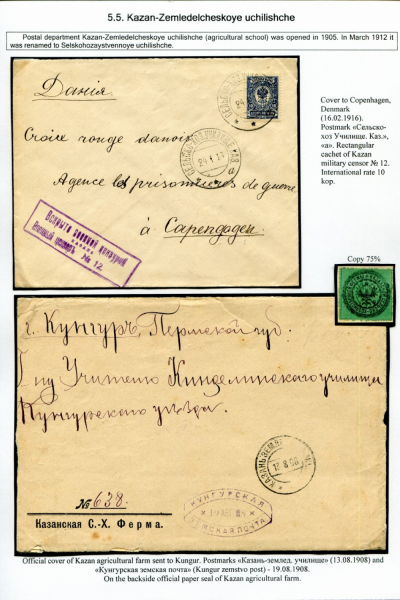 5.5. Kazan-Zemledelcheskoye uchilishche
Postal department Kazan-Zemledelcheskoye uchilishche (agricultural school) was opened in 1905. In March 1912 it
was renamed to Selskohozaystvennoye uchilishche.
Данія
Croix rouge danois
Agence les prisonnieres de guerre
à Capengagen
Вскрыто военной цензурой
КАЗАНЬ
Военный цензоръ № 12.
Cover to Copenhagen,
Denmark
(16.02.1916).
Postmark «Сельско-
хоз Училище. Каз.»,
«а». Rectangular
cachet of Kazan
military censor № 12.
International rate 10
kop.
Copy 75%
г. Кунгуръ, Пермской губ.
Гну Учителю Кинделинскаго училища
Кунгурскаго уѣзда.
КАЗАНЬ-ЗЕМЛ
13 8 08
№ 638.
КУНГУРСКАЯ
ЗЕМСКАЯ ПОЧТА
Казанская С.-Х. Ферма.
Official cover of Kazan agricultural farm sent to Kungur. Postmarks «Казань-землед. училище» (13.08.1908) and
«Кунгурская земская почта» (Kungur zemstvo post) - 19.08.1908.
On the backside official paper seal of Kazan agricultural farm.